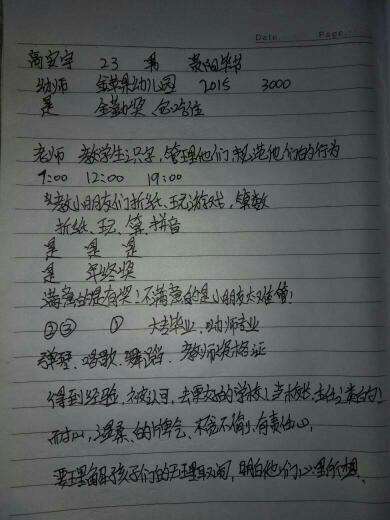 Date. Page.
周宝宇 23 男 贵阳毕节
幼师 金苹果幼儿园 2015 3000
是 金 奖,包吃住
老师 教学生识字,管理他们,规范他们的行为
7:00 12:00 19:00
教小朋友们折纸、玩游戏,算数
折纸、玩、算、拼音
是 是 是
是 年终奖
满意的是有奖!不满意的是小朋友太难管!
②③ ① 大专毕业,幼师专业
弹琴、唱歌、舞蹈、教师资格证
得到经验,被认可,去更好的学校,当校长,主任,
耐心,温柔、的 ,不 不偷,有责任心,
要理解孩子们的 ,明白他们心里所想、